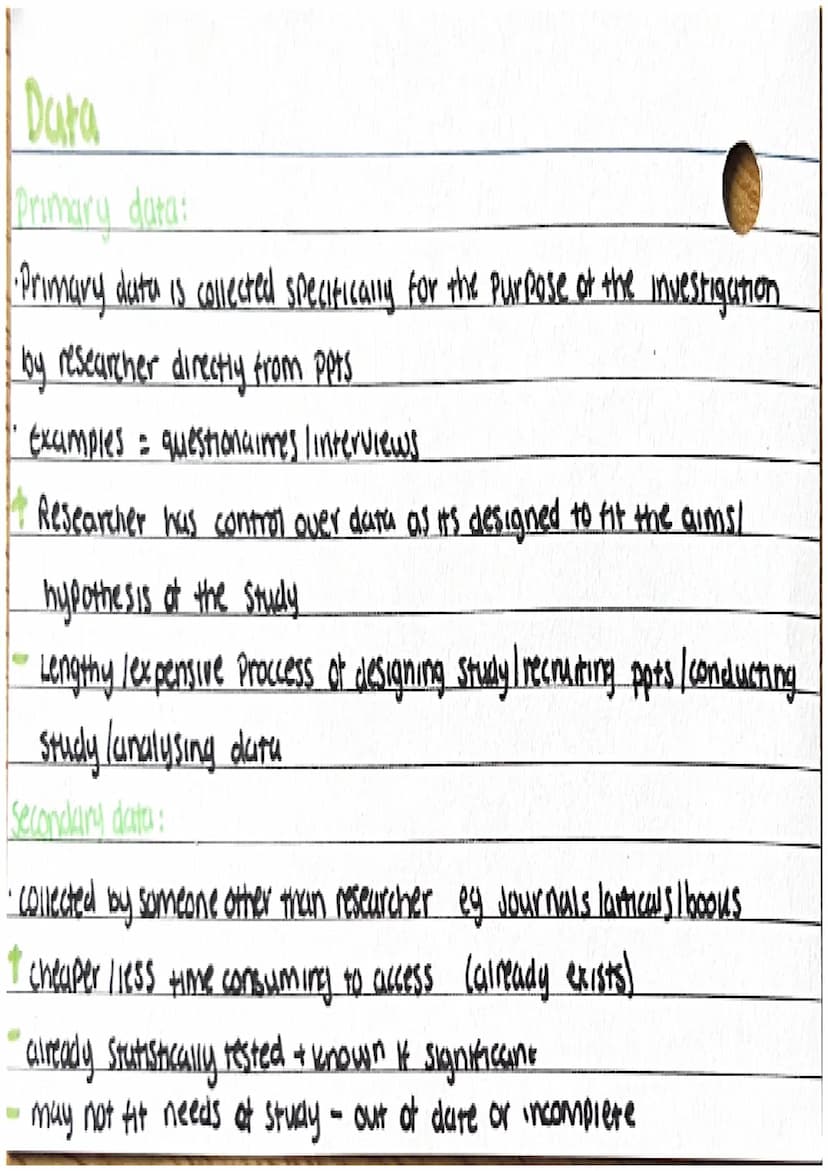 Data
Primary data:
· Primary data is collected specifically for the purpose of the investigation
by researcher directly from ppts
· Examples = questionaires/interviews
+ Researcher has control over data as its designed to fit the aims/
hypothesis of the study
- Lengthy/expensive proccess of designing study/recruiting ppts/conducting
study/analysing data
Secondary data:
· collected by someone other than researcher eg Journals/articals/books
+ cheaper/less time consuming to access (already exists)
- already statistically tested + known if significant
- may not fit needs of study - out of date or incomplete